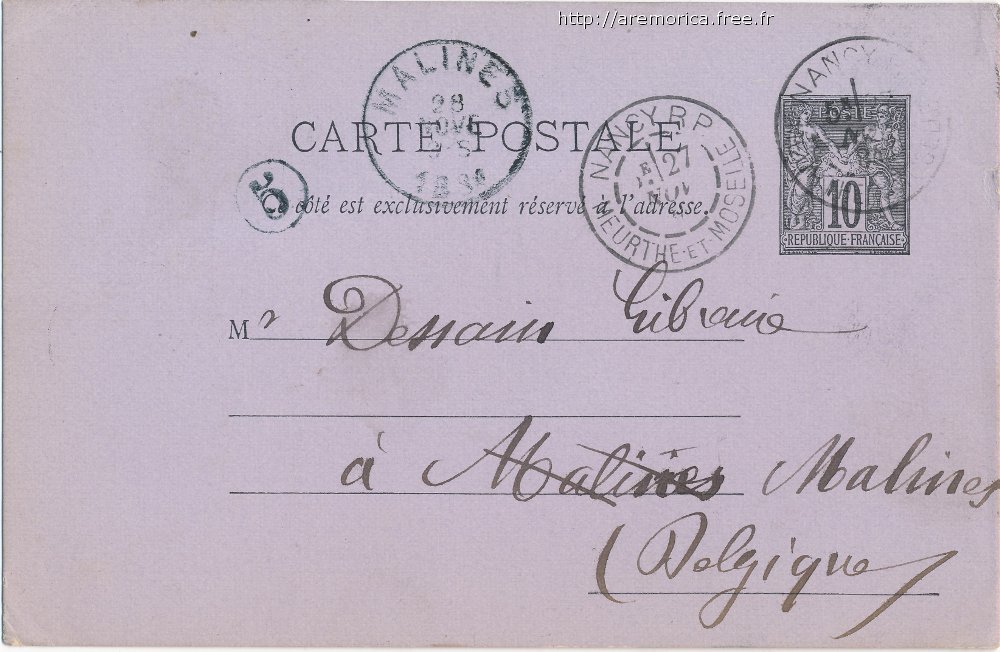 http://aremorica.free.fr
MALINES
28
NOVE
188
NANCY R.P.
27
NOV
MEURTHE-ET-MOSELLE
NANCY
POSTE
10
REPUBLIQUE·FRANÇAISE
CARTE POSTALE
Ce côté est exclusivement réservé à l'adresse.
Mr Dessain Libraire
à Malines Malines
(Belgique)